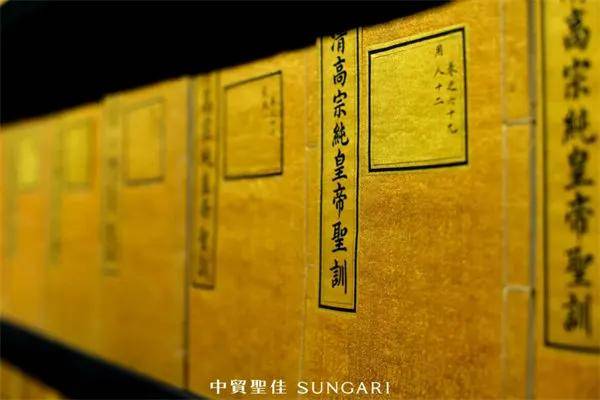 高宗純皇帝聖訓
卷之六十九
用人十二
清高宗純皇帝聖訓
宗純皇帝聖訓
中貿聖佳 SUNGARI